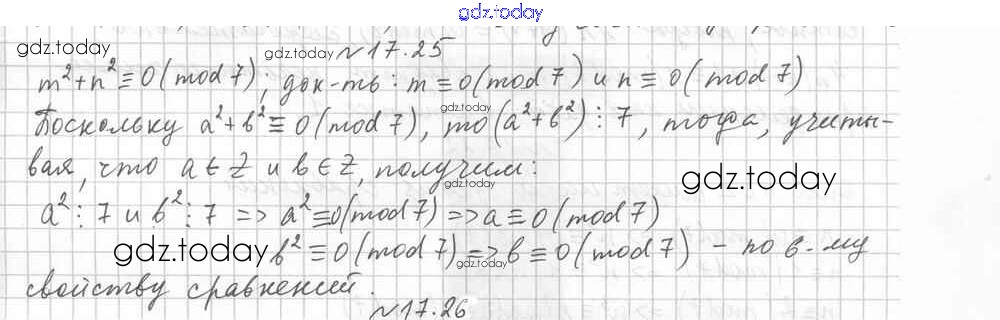 gdz.today
gdz.today gdz.today №17.25
m²+n²≡0(mod 7); док-ть: m≡0(mod 7) и n≡0(mod 7)
gdz.today
Поскольку a²+b²≡0(mod 7), то (a²+b²)⋮7, тогда, учиты-
вая, что a∈Z и b∈Z, получим:
gdz.today gdz.today
a²⋮7 и b²⋮7 => a²≡0(mod 7) => a≡0(mod 7)
gdz.today b²≡0(mod 7) => b≡0(mod 7) – по 6-му
gdz.today
свойству сравнений.
№17.26